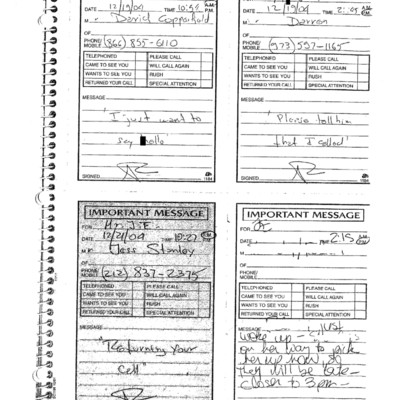 DATE 12/19/04 TIME 10:55 A.M. P.M.
M David Copperfield
OF
PHONE/
MOBILE (866) 855-6110
TELEPHONED PLEASE CALL
CAME TO SEE YOU WILL CALL AGAIN
WANTS TO SEE YOU RUSH
RETURNED YOUR CALL SPECIAL ATTENTION
MESSAGE
"I just want to
say hello
SIGNED
1184
DATE 12/19/04 TIME A.M. P.M.
M Darren
OF
PHONE/
MOBILE (973) 597-1165
TELEPHONED PLEASE CALL
CAME TO SEE YOU WILL CALL AGAIN
WANTS TO SEE YOU RUSH
RETURNED YOUR CALL SPECIAL ATTENTION
MESSAGE
"Please tell him
that I called"
SIGNED
1184
IMPORTANT MESSAGE
FOR
DATE 12/21/04 TIME 10:27
M Jess Stanley
OF
PHONE/
MOBILE (212) 837-2375
TELEPHONED PLEASE CALL
CAME TO SEE YOU WILL CALL AGAIN
WANTS TO SEE YOU RUSH
RETURNED YOUR CALL SPECIAL ATTENTION
MESSAGE
"Returning your
call"
IMPORTANT MESSAGE
FOR
DATE 2:15
M
OF
PHONE/
MOBILE
TELEPHONED PLEASE CALL
CAME TO SEE YOU WILL CALL AGAIN
WANTS TO SEE YOU RUSH
RETURNED YOUR CALL SPECIAL ATTENTION
MESSAGE just
woke up -
on her way to pick
her up now, so
they will be late -
closer to 3pm -